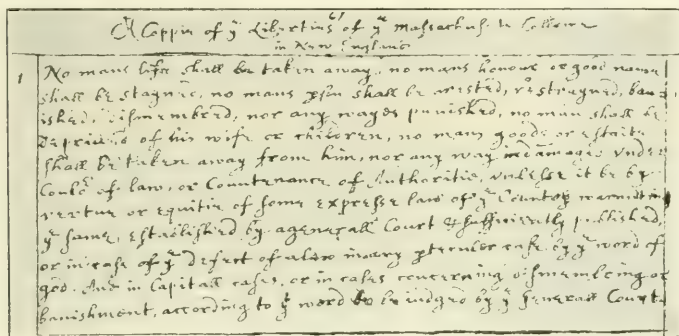 A Coppie of yᵉ Liberties of yᵉ Massachusets Collonie
in New England
1 No mans life shall be taken away, no mans honour or good name
shall be stayned, no mans pson shall be arested, restrayned, ban-
ished, dismembred, nor any wayes punished, no man shall be
deprived of his wife or children, no mans goods or estaite
shall be taken away from him, nor any way indamaged vnder
Coulr of law, or Countenance of Authoritie, vnlesse it be by
vertue or equitie of some expresse law of yᵉ Country warrenting
yᵉ same, established by a generall Court & sufficiently published,
or in case of yᵉ defect of a law in any pteculer case by yᵉ word of
god. And in Capitall cases, or in cases concerning dismembring or
banishment, according to yᵉ word to be iudged by yᵉ Generall Court